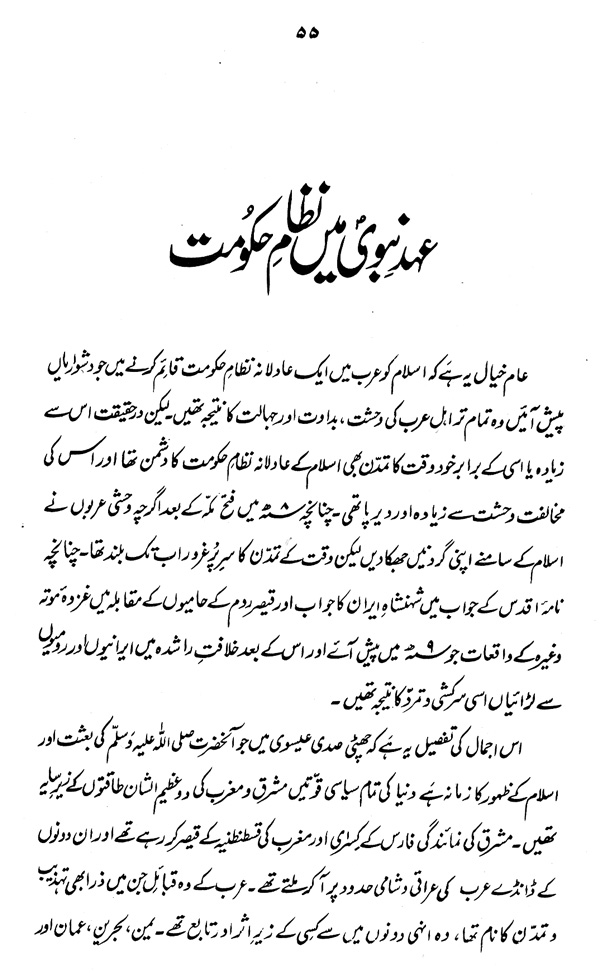 ۵۵
عہدِ نبویؐ میں نظامِ حکومت
عام خیال یہ ہے کہ اسلام کو عرب میں ایک عادلانہ نظامِ حکومت قائم کرنے میں جو دشواریاں
پیش آئیں وہ تمام تر اہلِ عرب کی وحشت، بداوت اور جہالت کا نتیجہ تھیں۔ لیکن درحقیقت اس سے
زیادہ یا اسی کے برابر خود وقت کا تمدّن بھی اسلام کے عادلانہ نظامِ حکومت کا دشمن تھا اور اس کی
مخالفت وحشت سے زیادہ اور دیرپا تھی۔ چنانچہ ۸ھ میں فتحِ مکّہ کے بعد اگرچہ وحشی عربوں نے
اسلام کے سامنے اپنی گردنیں جھکا دیں لیکن وقت کے تمدّن کا سرِ پُر غرور اب تک بلند تھا۔ چنانچہ
نامۂ اقدس کے جواب میں شہنشاہِ ایران کا جواب اور قیصرِ روم کے حامیوں کے مقابلہ میں غزوہ موتہ
وغیرہ کے واقعات جو ۹ھ میں پیش آئے اور اس کے بعد خلافتِ راشدہ میں ایرانیوں اور رومیوں
سے لڑائیاں اسی سرکشی و تمرّد کا نتیجہ تھیں۔
اس اجمال کی تفصیل یہ ہے کہ چھٹی صدی عیسوی میں جو آنحضرت صلی اللہ علیہ وسلّم کی بعثت اور
اسلام کے ظہور کا زمانہ ہے دنیا کی تمام سیاسی قوّتیں مشرق و مغرب کی دو عظیم الشان طاقتوں کے زیرِ سایہ
تھیں۔ مشرق کی نمائندگی فارس کے کسریٰ اور مغرب کی قسطنطنیہ کے قیصر کر رہے تھے اور ان دونوں
کے ڈانڈے عرب کی عراقی و شامی حدود پر آ کر ملتے تھے۔ عرب کے وہ قبائل جن میں ذرا بھی تہذیب
و تمدّن کا نام تھا، وہ انہی دونوں میں سے کسی کے زیرِ اثر اور تابع تھے۔ یمن، بحرین، عمان اور